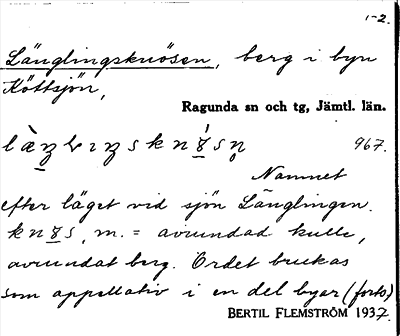 1-2.
Länglingsknösen, berg i byn
Köttsjön,
Ragunda sn och tg, Jämtl. län.
967.
Namnet
efter läget vid sjön Länglingen.
m. = avrundad kulle,
avrundat berg. Ordet brukas
som appellativ i en del byar (forts)
BERTIL FLEMSTRÖM 1937.